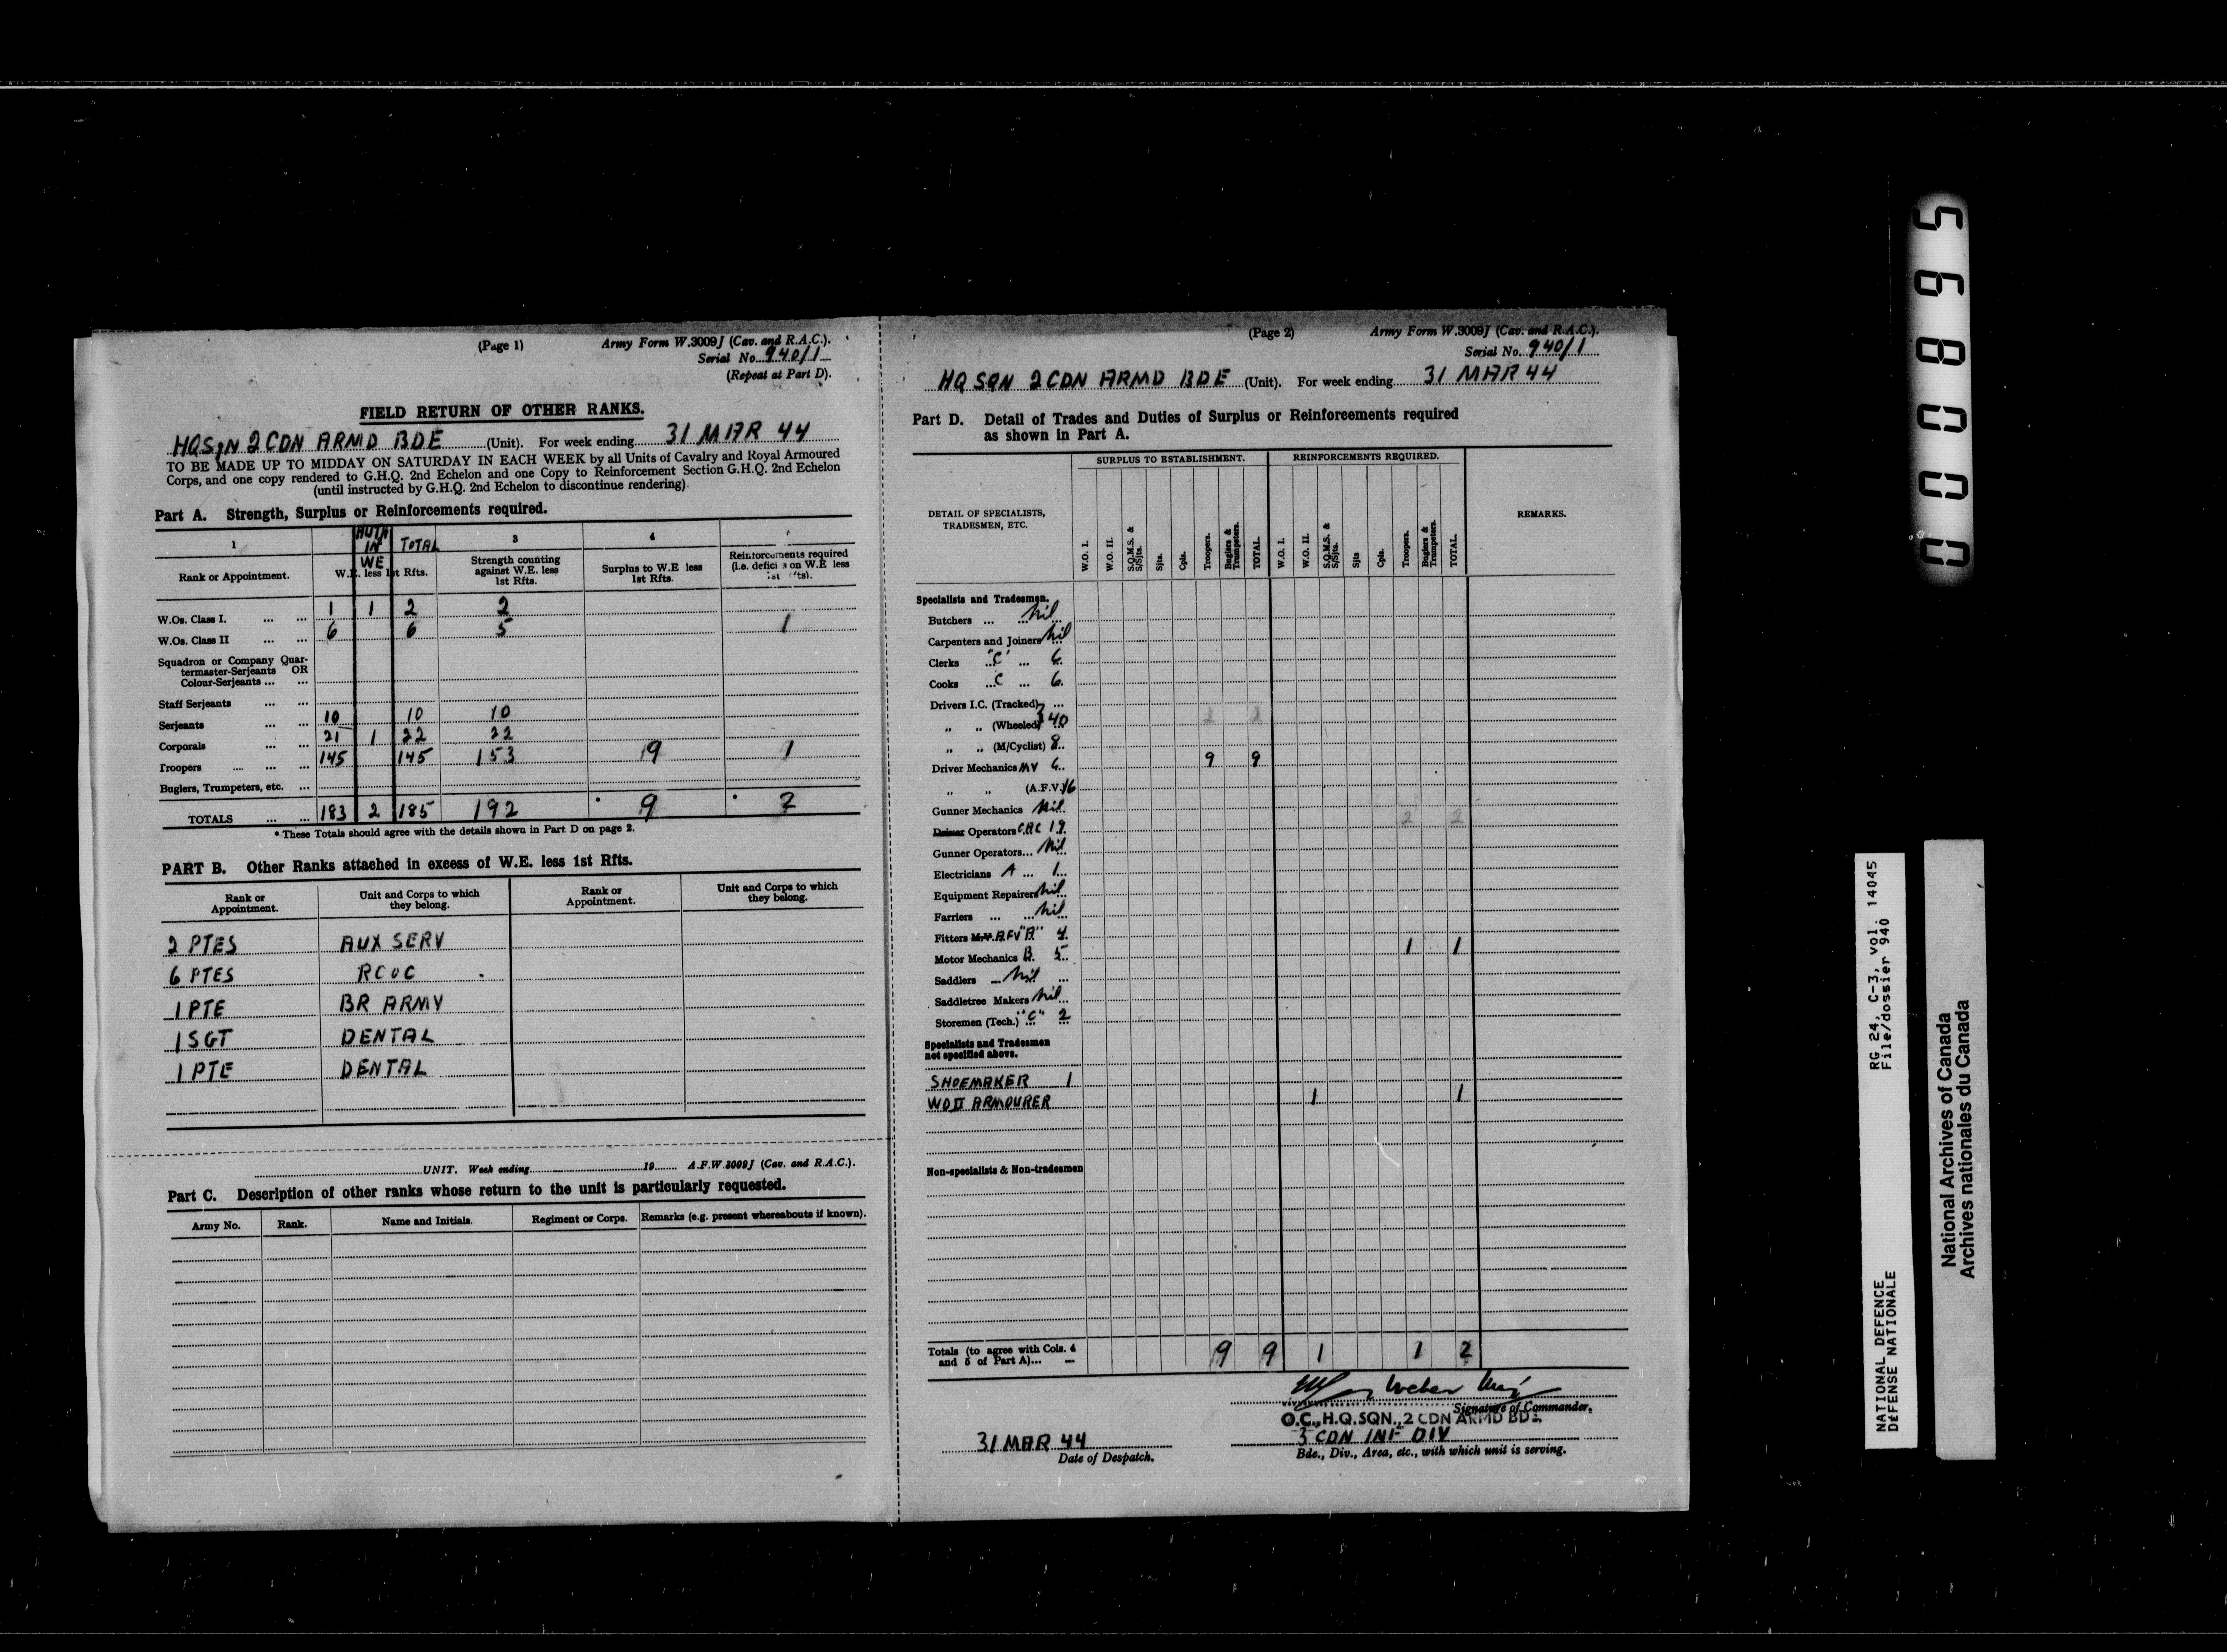 (Page 1) Army Form W.3009J (Cav. and R.A.C.).
Serial No. 940/1
(Repeat at Part D).
FIELD RETURN OF OTHER RANKS.
HQ SqN 2 CDN ARMD BDE (Unit). For week ending 31 MAR 44
TO BE MADE UP TO MIDDAY ON SATURDAY IN EACH WEEK by all Units of Cavalry and Royal Armoured
Corps, and one copy rendered to G.H.Q. 2nd Echelon and one Copy to Reinforcement Section G.H.Q. 2nd Echelon
(until instructed by G.H.Q. 2nd Echelon to discontinue rendering).
Part A. Strength, Surplus or Reinforcements required.
1 AUTH IN WE TOTAL 3 4
Rank or Appointment. W.E. less 1st Rfts. Strength counting against W.E. less 1st Rfts. Surplus to W.E less 1st Rfts. Reinforcements required (i.e. defici s on W.E less 1st Rfts).
W.Os. Class I. ... ... 1 1 2 2
W.Os. Class II ... ... 6 6 5 1
Squadron or Company Quar-
termaster-Serjeants OR
Colour-Serjeants ... ...
Staff Serjeants ... ...
Serjeants ... ... 10 10 10
Corporals ... ... 21 1 22 22
Troopers ... ... ... 145 145 153 9 1
Buglers, Trumpeters, etc. ...
TOTALS ... ... 183 2 185 192 * 9 * 2
* These Totals should agree with the details shown in Part D on page 2.
PART B. Other Ranks attached in excess of W.E. less 1st Rfts.
Rank or Appointment. Unit and Corps to which they belong. Rank or Appointment. Unit and Corps to which they belong.
2 PTES AUX SERV
6 PTES RCOC
1 PTE BR ARMY
1 SGT DENTAL
1 PTE DENTAL
UNIT. Week ending 19 A.F.W.3009J (Cav. and R.A.C.).
Part C. Description of other ranks whose return to the unit is particularly requested.
Army No. Rank. Name and Initials. Regiment or Corps. Remarks (e.g. present whereabouts if known).
(Page 2) Army Form W.3009J (Cav. and R.A.C.).
Serial No. 940/1
HQ SQN 2 CDN ARMD BDE (Unit). For week ending 31 MAR 44
Part D. Detail of Trades and Duties of Surplus or Reinforcements required
as shown in Part A.
SURPLUS TO ESTABLISHMENT. REINFORCEMENTS REQUIRED.
DETAIL OF SPECIALISTS, TRADESMEN, ETC. REMARKS.
W.O. I. W.O. II. S.Q.M.S. & S/Sjts. Sjts. Cpls. Troopers. Buglers & Trumpeters. TOTAL. W.O. I. W.O. II. S.Q.M.S. & S/Sjts. Sjts Cpls. Troopers. Buglers & Trumpeters. TOTAL.
Specialists and Tradesmen.
Butchers ... Nil
Carpenters and Joiners Nil
Clerks "C" ... 6
Cooks ...C ... 6
Drivers I.C. (Tracked) ...
„ „ (Wheeled) 40 2 2
„ „ (M/Cyclist) 8
Driver Mechanics MV 6 9 9
„ „ (A.F.V.) 16
Gunner Mechanics Nil
Driver Operators CAC 19 2 2
Gunner Operators... Nil
Electricians A ... 1
Equipment Repairers Nil
Farriers ... ... Nil
Fitters M.V. AFV "A" 4
Motor Mechanics B. 5 1 1
Saddlers ... Nil ...
Saddletree Makers Nil
Storemen (Tech.) "C" 2
Specialists and Tradesmen
not specified above.
SHOEMAKER 1
WO II ARMOURER 1 1
Non-specialists & Non-tradesmen
Totals (to agree with Cols. 4 and 5 of Part A)... 9 9 1 1 2
Weber Maj
Signature of Commander.
O.C., H.Q. SQN., 2 CDN ARMD BDE
3 CDN INF DIV
Bde., Div., Area, etc., with which unit is serving.
31 MAR 44
Date of Despatch.
0008965
RG 24, C-3, vol. 14045
File/dossier 940
NATIONAL DEFENCE
DÉFENSE NATIONALE
National Archives of Canada
Archives nationales du Canada